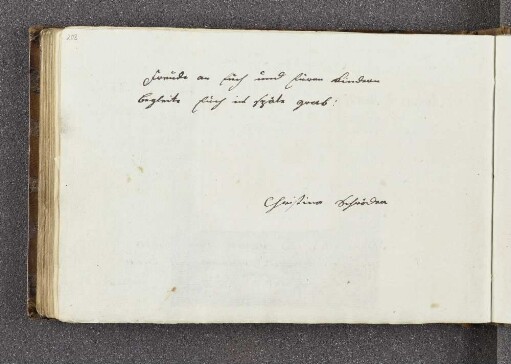 202
Freüde an Eüch und Eüren Kindern
begleite Eüch ins späte grab:
Christina Schröder